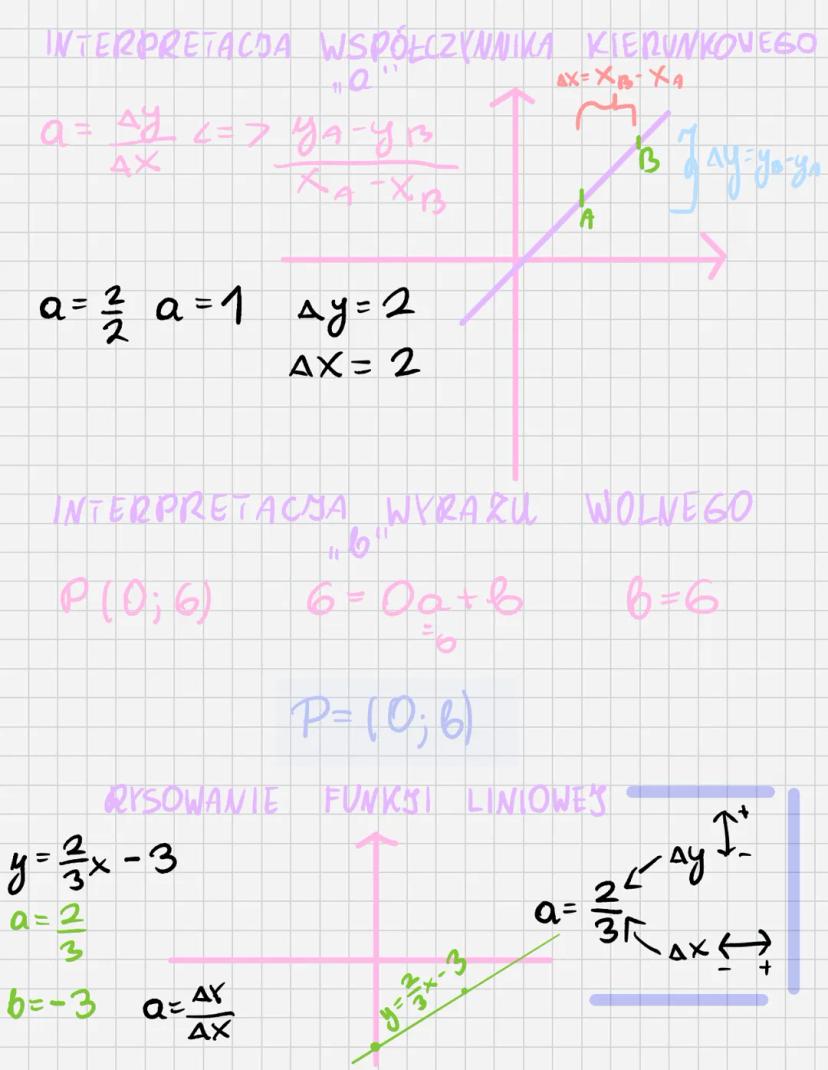 INTERPRETACJA WSPÓŁCZYNNIKA KIERUNKOWEGO
„a"
a = Δy/Δx <=> yA - yB / xA - xB
Δx = xB - xA
B
A
Δy = yB - yA
a = 2/2 a = 1 Δy = 2
Δx = 2
INTERPRETACJA WYRAZU WOLNEGO
„b"
P(0; 6) 6 = 0a + b b = 6
P = (0; b)
RYSOWANIE FUNKJI LINIOWEJ
y = 2/3 x - 3
a = 2/3
b = -3
a = ΔY/ΔX
y = 2/3 x - 3
a = 2/3
Δy + -
Δx - +